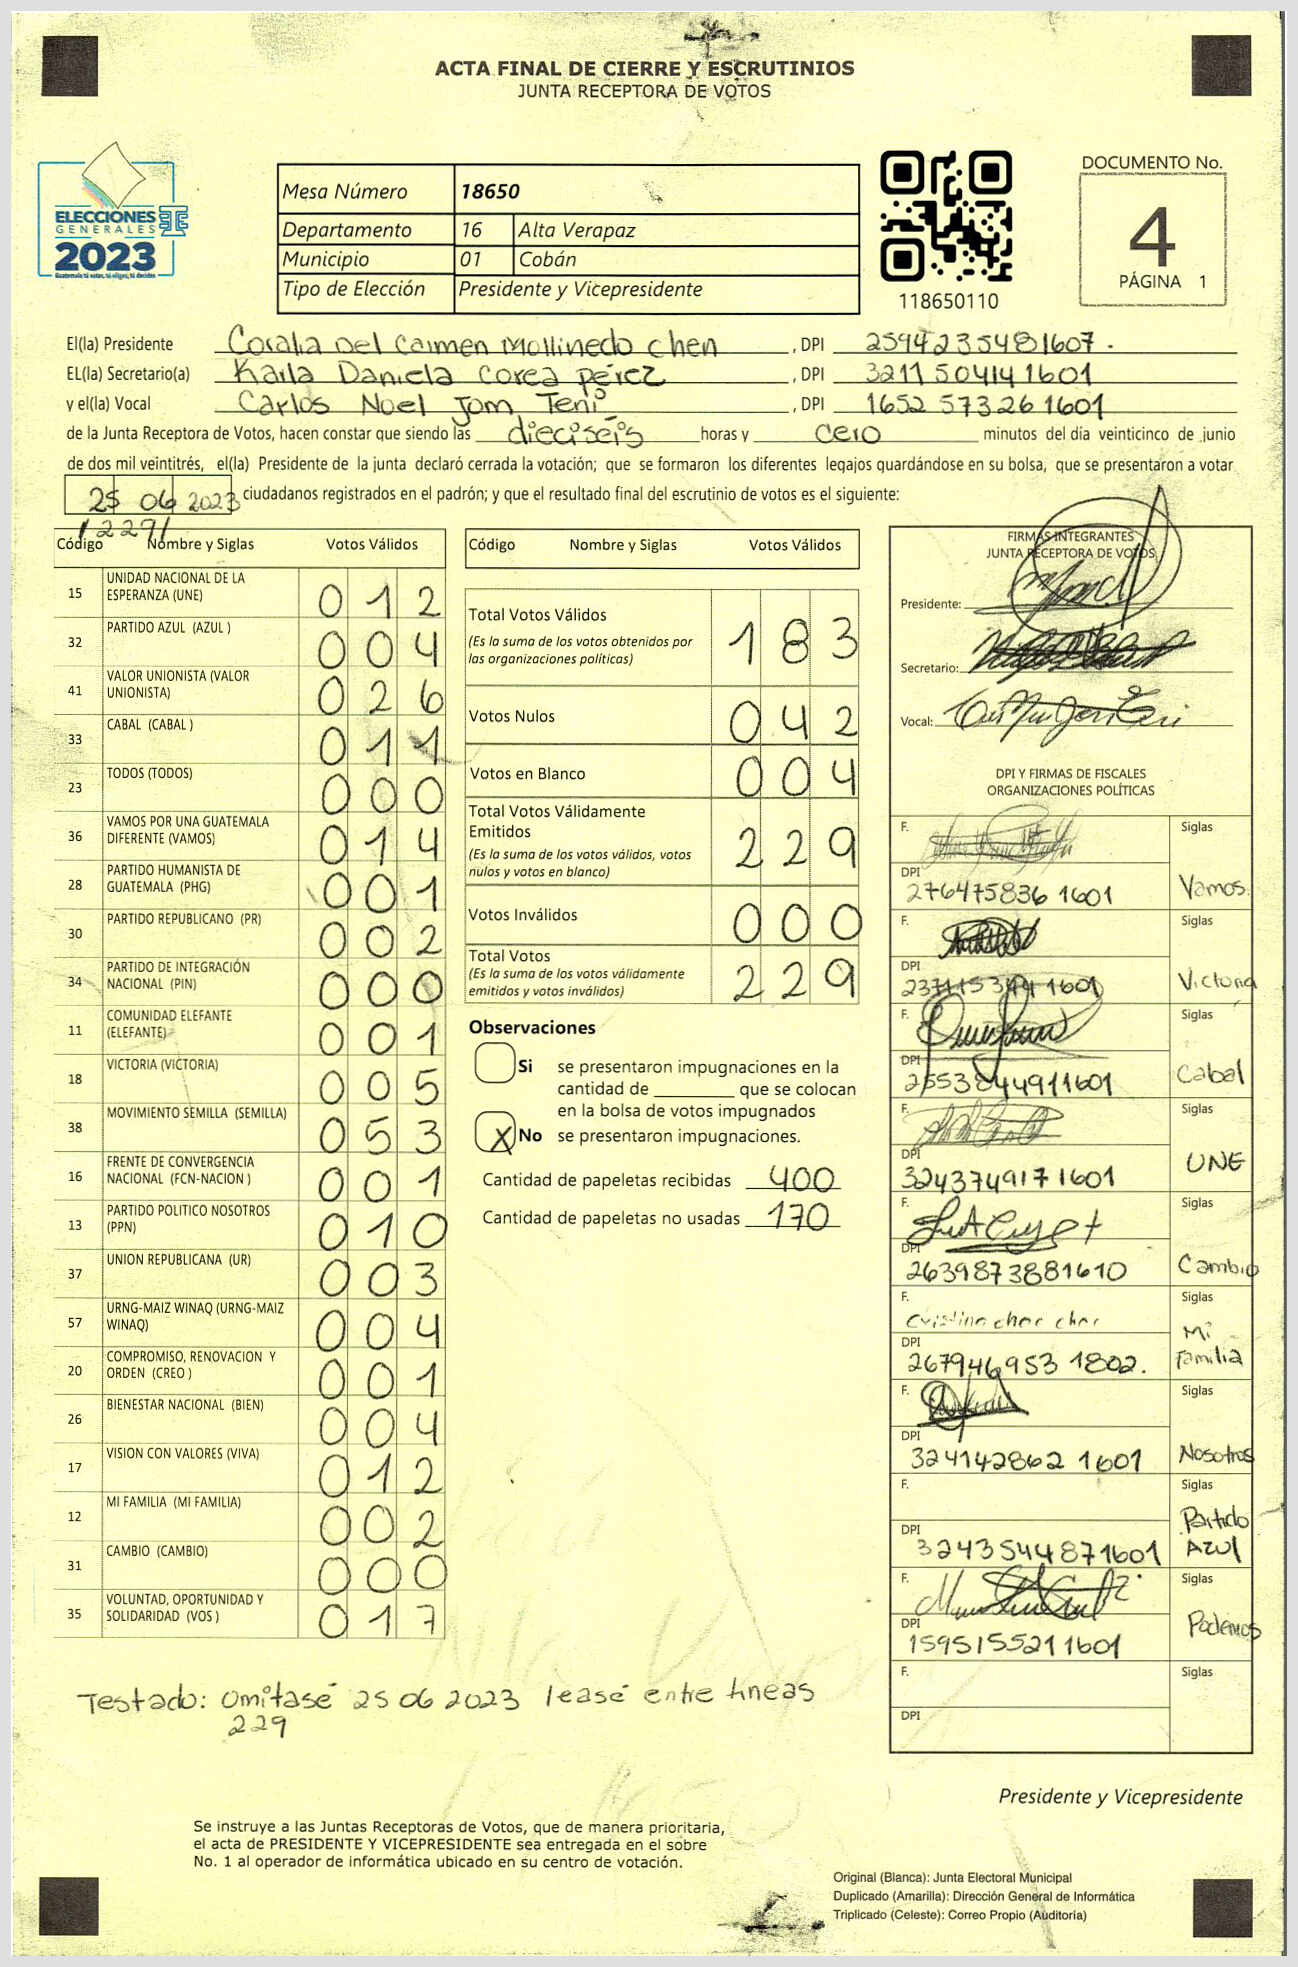 ACTA FINAL DE CIERRE Y ESCRUTINIOS
JUNTA RECEPTORA DE VOTOS
ELECCIONES
GENERALES
2023
Guatemala tú votas, tú eliges, tú decides
Mesa Número 18650
Departamento 16 Alta Verapaz
Municipio 01 Cobán
Tipo de Elección Presidente y Vicepresidente
118650110
DOCUMENTO No.
4
PÁGINA 1
El(la) Presidente Coralia Del Carmen Mollinedo Chen , DPI 2594235481607.
EL(la) Secretario(a) Karla Daniela Corea Pérez , DPI 3211504141601
y el(la) Vocal Carlos Noel Jom Teni , DPI 1652573261601
de la Junta Receptora de Votos, hacen constar que siendo las dieciséis horas y cero minutos del día veinticinco de junio
de dos mil veintitrés, el(la) Presidente de la junta declaró cerrada la votación; que se formaron los diferentes legajos quardándose en su bolsa, que se presentaron a votar
25 06 2023 ciudadanos registrados en el padrón; y que el resultado final del escrutinio de votos es el siguiente:
/229/
Código Nombre y Siglas Votos Válidos
15 UNIDAD NACIONAL DE LA ESPERANZA (UNE) 012
32 PARTIDO AZUL (AZUL ) 004
41 VALOR UNIONISTA (VALOR UNIONISTA) 026
33 CABAL (CABAL ) 011
23 TODOS (TODOS) 000
36 VAMOS POR UNA GUATEMALA DIFERENTE (VAMOS) 014
28 PARTIDO HUMANISTA DE GUATEMALA (PHG) 001
30 PARTIDO REPUBLICANO (PR) 002
34 PARTIDO DE INTEGRACIÓN NACIONAL (PIN) 000
11 COMUNIDAD ELEFANTE (ELEFANTE) 001
18 VICTORIA (VICTORIA) 005
38 MOVIMIENTO SEMILLA (SEMILLA) 053
16 FRENTE DE CONVERGENCIA NACIONAL (FCN-NACION ) 001
13 PARTIDO POLITICO NOSOTROS (PPN) 010
37 UNION REPUBLICANA (UR) 003
57 URNG-MAIZ WINAQ (URNG-MAIZ WINAQ) 004
20 COMPROMISO, RENOVACION Y ORDEN (CREO ) 001
26 BIENESTAR NACIONAL (BIEN) 004
17 VISION CON VALORES (VIVA) 012
12 MI FAMILIA (MI FAMILIA) 002
31 CAMBIO (CAMBIO) 000
35 VOLUNTAD, OPORTUNIDAD Y SOLIDARIDAD (VOS ) 017
Código Nombre y Siglas Votos Válidos
Total Votos Válidos 183
(Es la suma de los votos obtenidos por
las organizaciones políticas)
Votos Nulos 042
Votos en Blanco 004
Total Votos Válidamente
Emitidos 229
(Es la suma de los votos válidos, votos
nulos y votos en blanco)
Votos Inválidos 000
Total Votos 229
(Es la suma de los votos válidamente
emitidos y votos inválidos)
Observaciones
Si se presentaron impugnaciones en la
cantidad de ________ que se colocan
en la bolsa de votos impugnados
X No se presentaron impugnaciones.
Cantidad de papeletas recibidas 400
Cantidad de papeletas no usadas 170
FIRMAS INTEGRANTES
JUNTA RECEPTORA DE VOTOS
Presidente:
Secretario:
Vocal:
DPI Y FIRMAS DE FISCALES
ORGANIZACIONES POLÍTICAS
F. Siglas
DPI 2764758361601 Vamos
F. Siglas
DPI Victoria
F. Siglas
DPI 2553844911601 Cabal
F. Siglas
DPI 3243749171601 UNE
F. Siglas
DPI 2639873881610 Cambio
F. Siglas
DPI 2679469531802. Mi Familia
F. Siglas
DPI 3241428621601 Nosotros
F. Siglas
DPI 3243544871601 Partido AZUL
F. Siglas
DPI 1595155211601 Podemos
F. Siglas
DPI
Testado: Omitasé 25 06 2023 leasé entre lineas
229
Presidente y Vicepresidente
Se instruye a las Juntas Receptoras de Votos, que de manera prioritaria,
el acta de PRESIDENTE Y VICEPRESIDENTE sea entregada en el sobre
No. 1 al operador de informática ubicado en su centro de votación.
Original (Blanca): Junta Electoral Municipal
Duplicado (Amarilla): Dirección General de Informática
Triplicado (Celeste): Correo Propio (Auditoría)